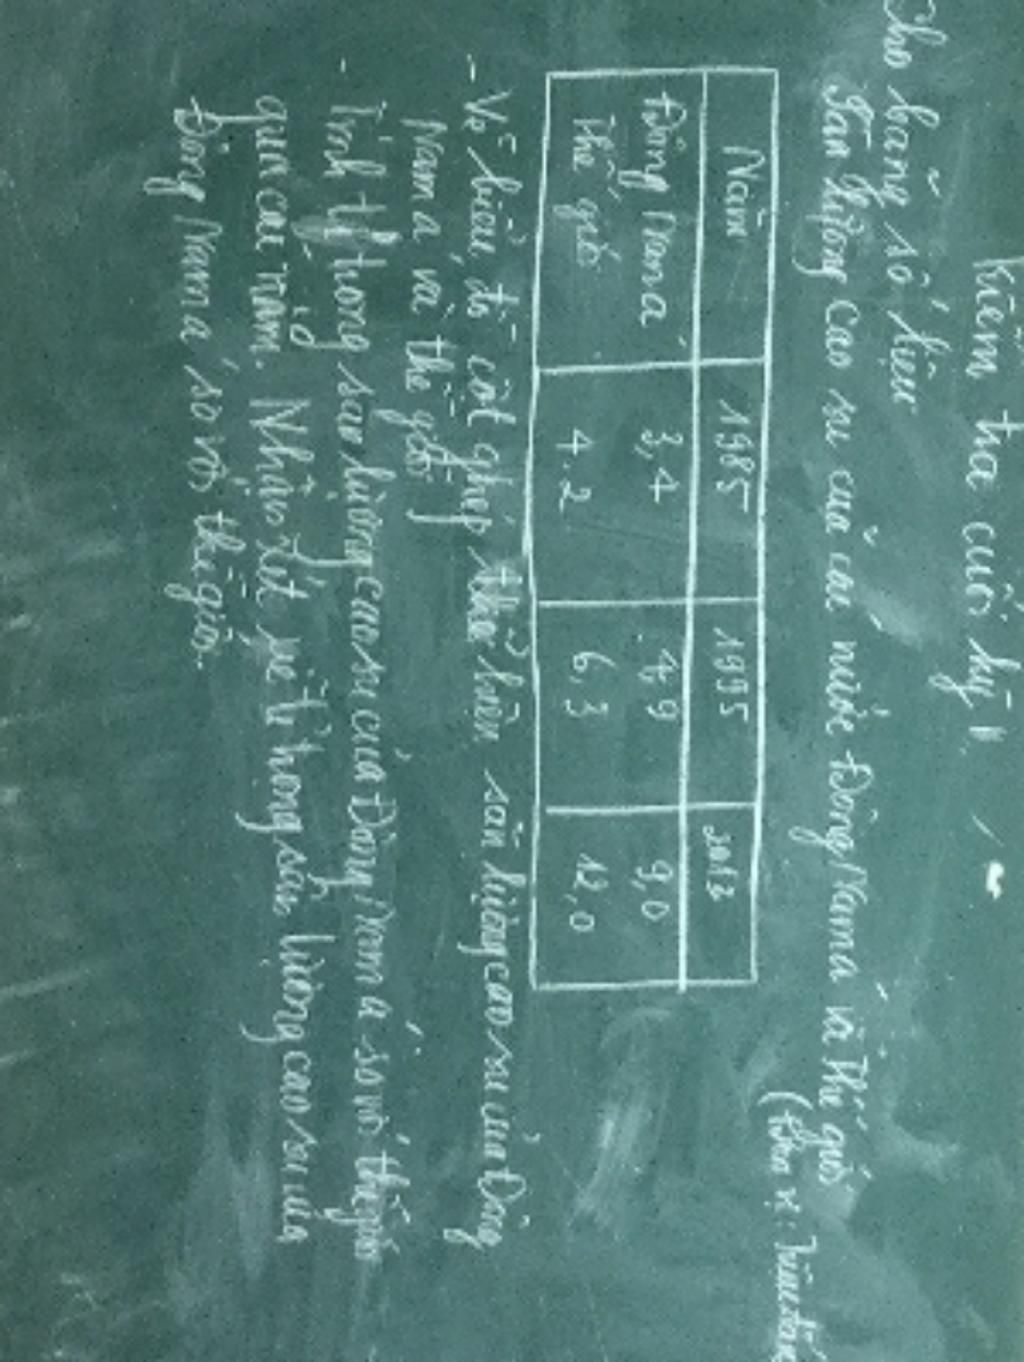 Kiểm tra cuối kỳ 1
Cho bảng số liệu
Sản lượng cao su của các nước Đông Nam á và Thế giới
(Đơn vị: Triệu tấn
Năm 1985 1995 2013
Đông Nam á 3,4 4,9 9,0
Thế giới 4.2 6,3 12,0
- Vẽ biểu đồ cột ghép thể hiện sản lượng cao su của Đông
Nam á và thế giới
- Tính tỉ trọng sản lượng cao su của Đông Nam á so với thế giới
qua các năm. Nhận xét về tỉ trọng sản lượng cao su của
Đông Nam á so với thế giới.